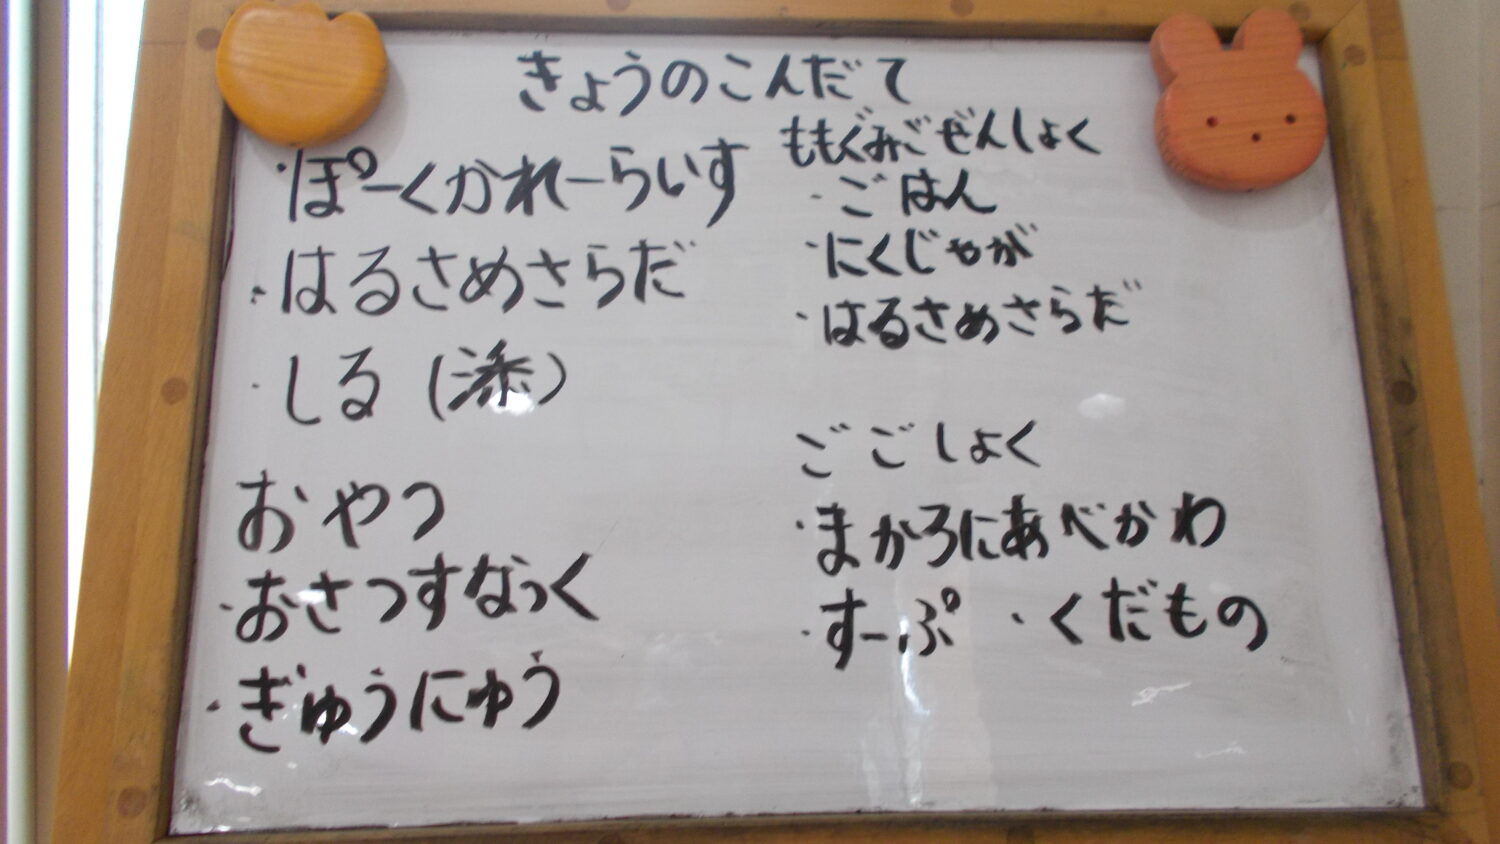 きょうのこんだて
・ぽーくかれーらいす
・はるさめさらだ
・しる(添)
おやつ
・おさつすなっく
・ぎゅうにゅう
ももぐみごぜんしょく
・ごはん
・にくじゃが
・はるさめさらだ
ごごしょく
・まかろにあべかわ
・すーぷ ・くだもの